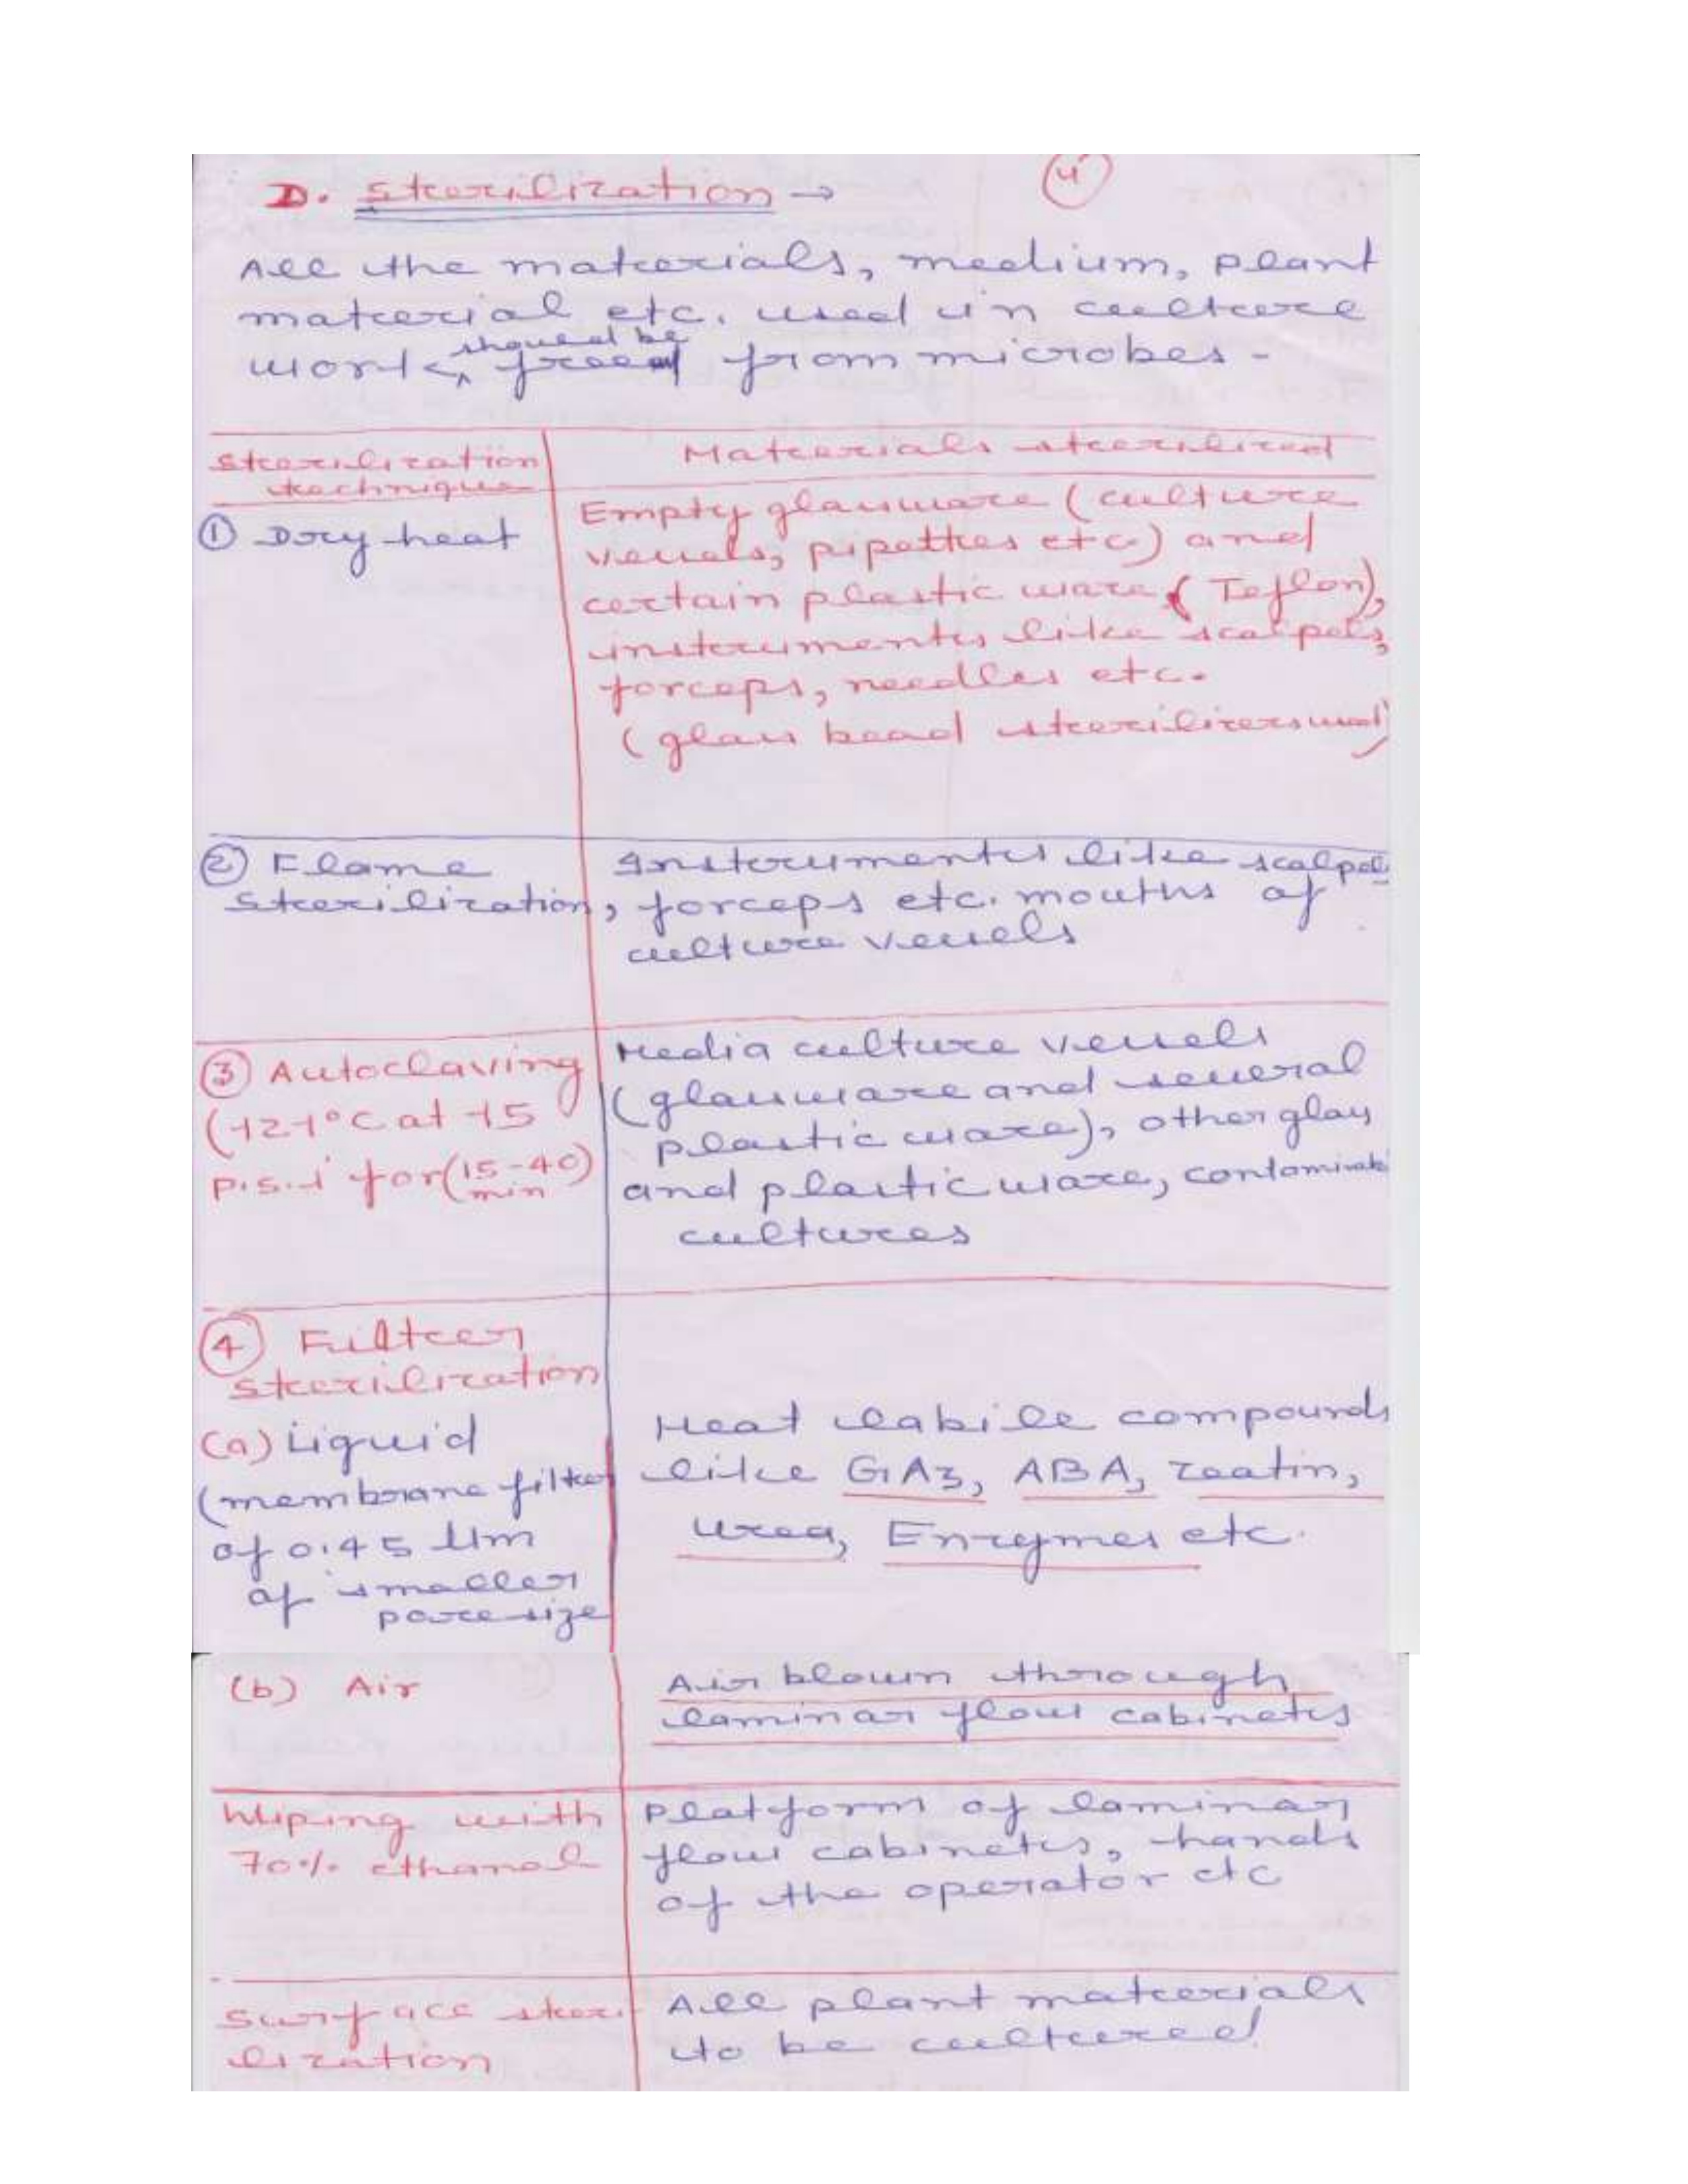 D. Sterilization → 4
All the materials, medium, plant
material etc. used in culture
should be
work, freed from microbes -
Sterilization technique
Materials sterilized
① Dry heat
Empty glassware (culture
vessels, pipettes etc.) and
certain plastic ware (Teflon),
instruments like scalpels,
forceps, needles etc.
(glass bead sterilizers used)
② Flame
sterilization,
Instruments like scalpel
forceps etc. mouths of
culture vessels
③ Autoclaving
(121°C at 15
p.s.i for (15-40)
min
Media culture vessels
(glassware and several
plastic ware), other glass
and plastic ware,
cultures
④ Filter
sterilization
(a) Liquid
(membrane filter
of 0.45 µm
of smaller
pore size
Heat labile compounds
like GA3, ABA, zeatin,
urea, Enzymes etc.
(b) Air
Air blown through
laminar flow cabinets
Wiping with
70% ethanol
Platform of laminar
flow cabinets, hands
of the operator etc
Surface steri-
lization
All plant materials
to be cultured